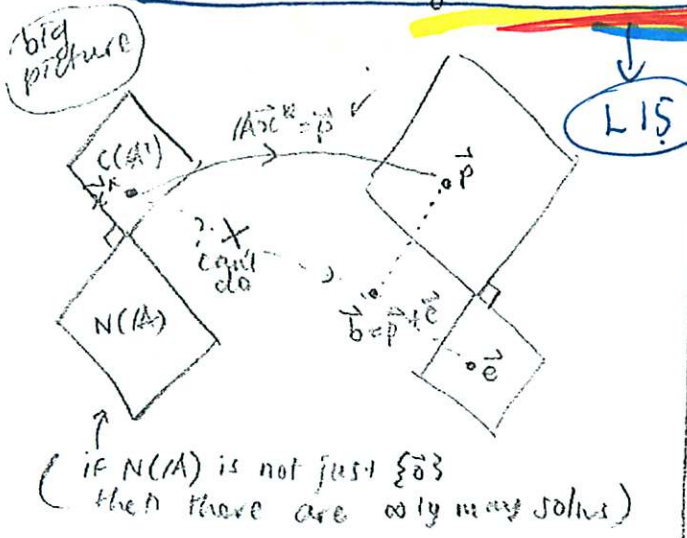 big
picture
L15
C(Aᵀ)
A x⃗* = p⃗ ✓
x⃗*
p⃗
? X
can't
do
N(A)
b⃗ = p⃗ + e⃗
e⃗
( if N(A) is not just {0⃗}
then there are ∞ly many solns )